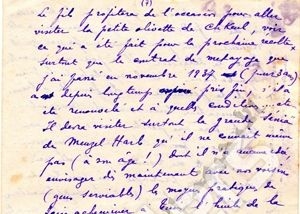 (7)
Le fil profitera de l'occasion pour aller
visiter la petite olivette de Chkeul, voir
ce qui a été fait pour la prochaine récolte
surtout que le contrat de métayage que
j'ai passé en novembre 1937 (pour 3 ans)
a depuis longtemps pris fin, s'il a
été renouvelé et à quelles conditions etc
Il devra visiter surtout la grande Senia
de Menzel Harb qu'il ne connait même
pas (à son age!) dont il n'a
envisager dès maintenant avec nos voisins
(gens serviables) le moyen pratique de
à Tunis l'huile de la